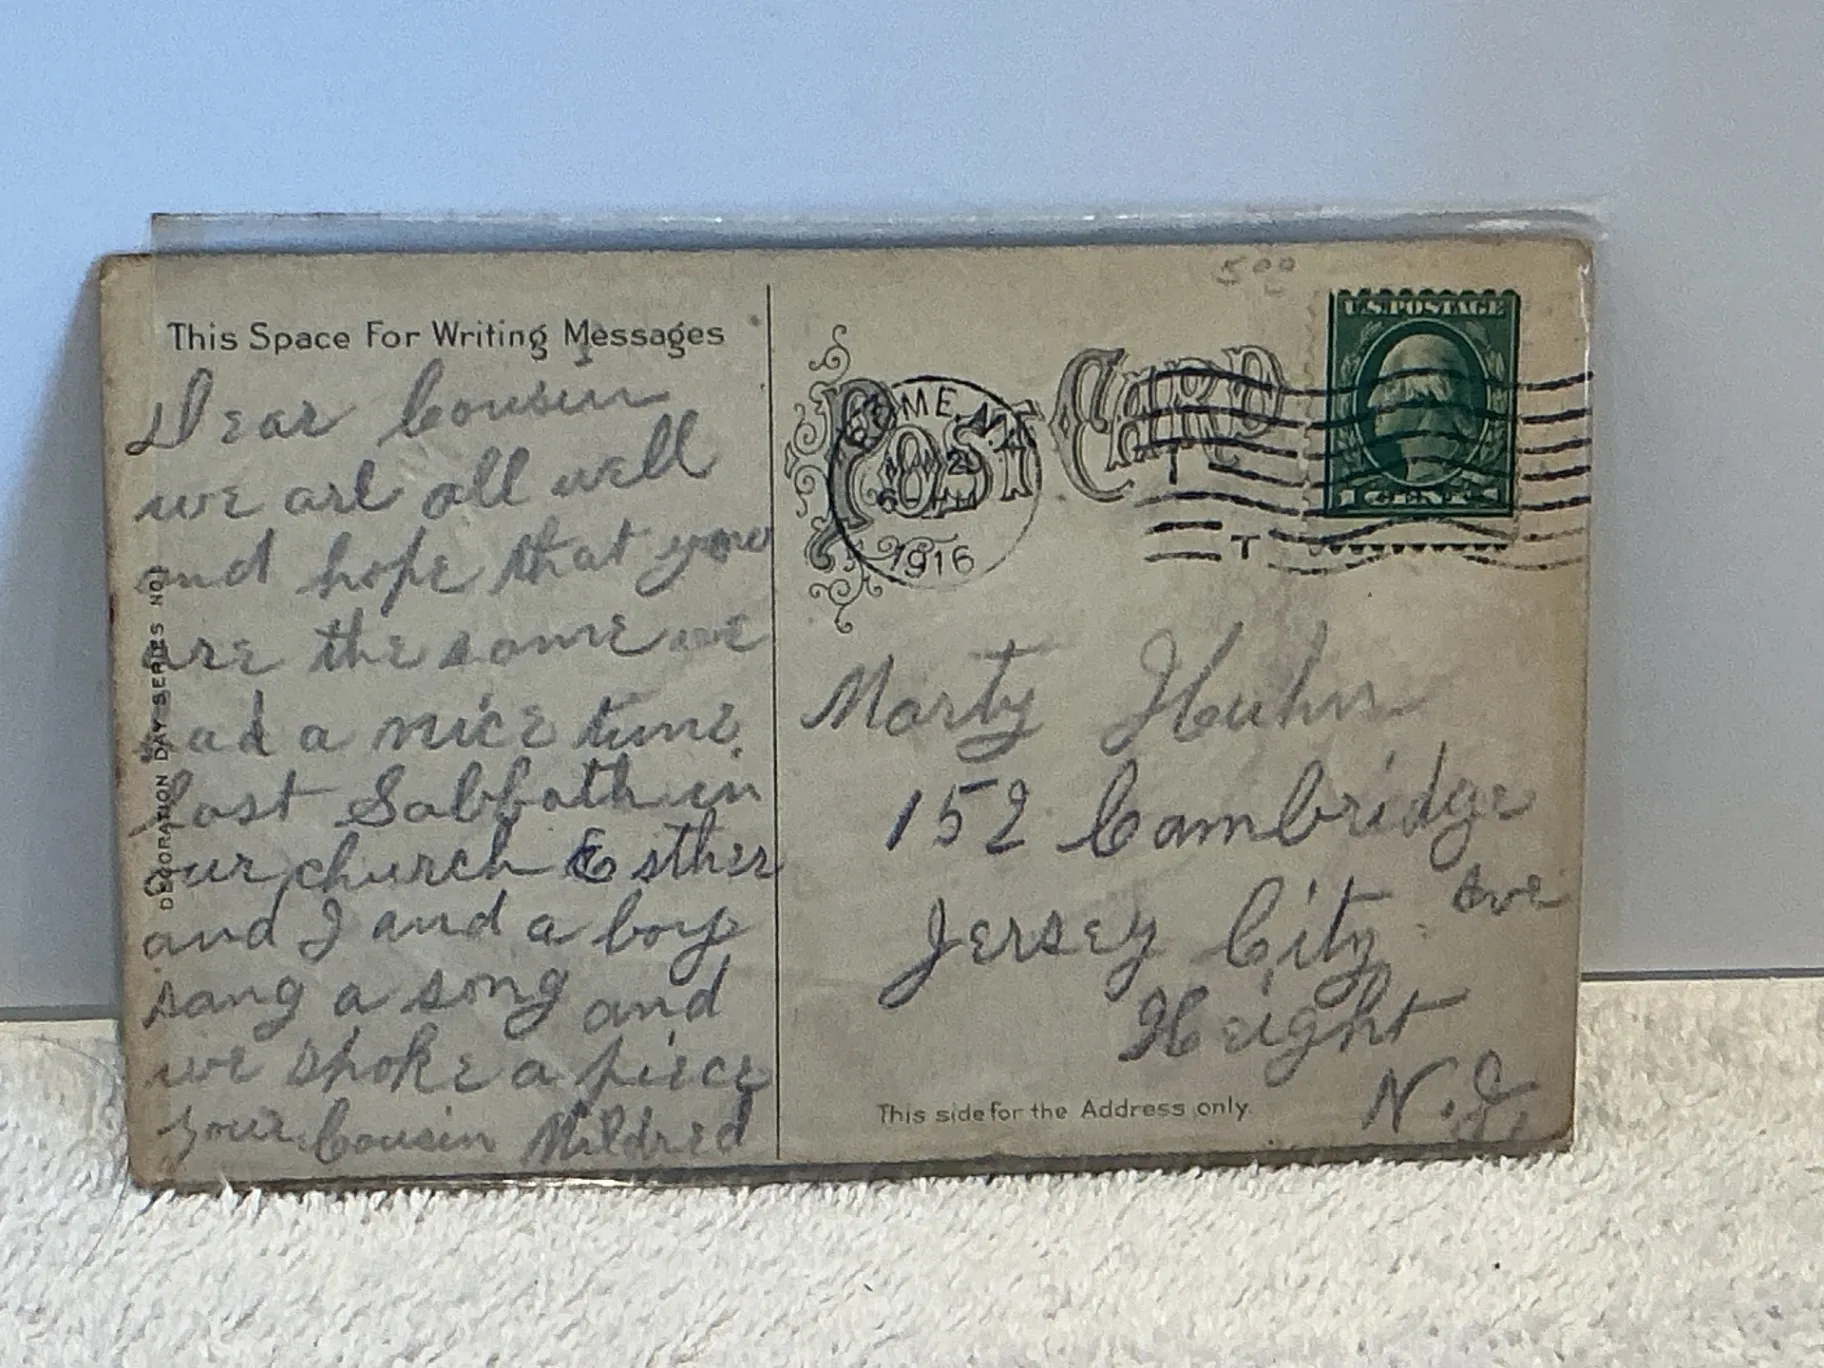 This Space For Writing Messages
Dear Cousin
we are all well
and hope that you
are the same we
had a nice time
last Sabbath in
our church Esther
and I and a boy
sang a song and
we spoke a piece
your Cousin Mildred
DECORATION DAY SERIES NO 1
5 00
POST CARD
ROME, N.Y.
6 - PM
1916
U.S. POSTAGE
1 CENT 1
Marty Huhn
152 Cambridge
Ave
Jersey City
Height
N.J.
This side for the Address only.